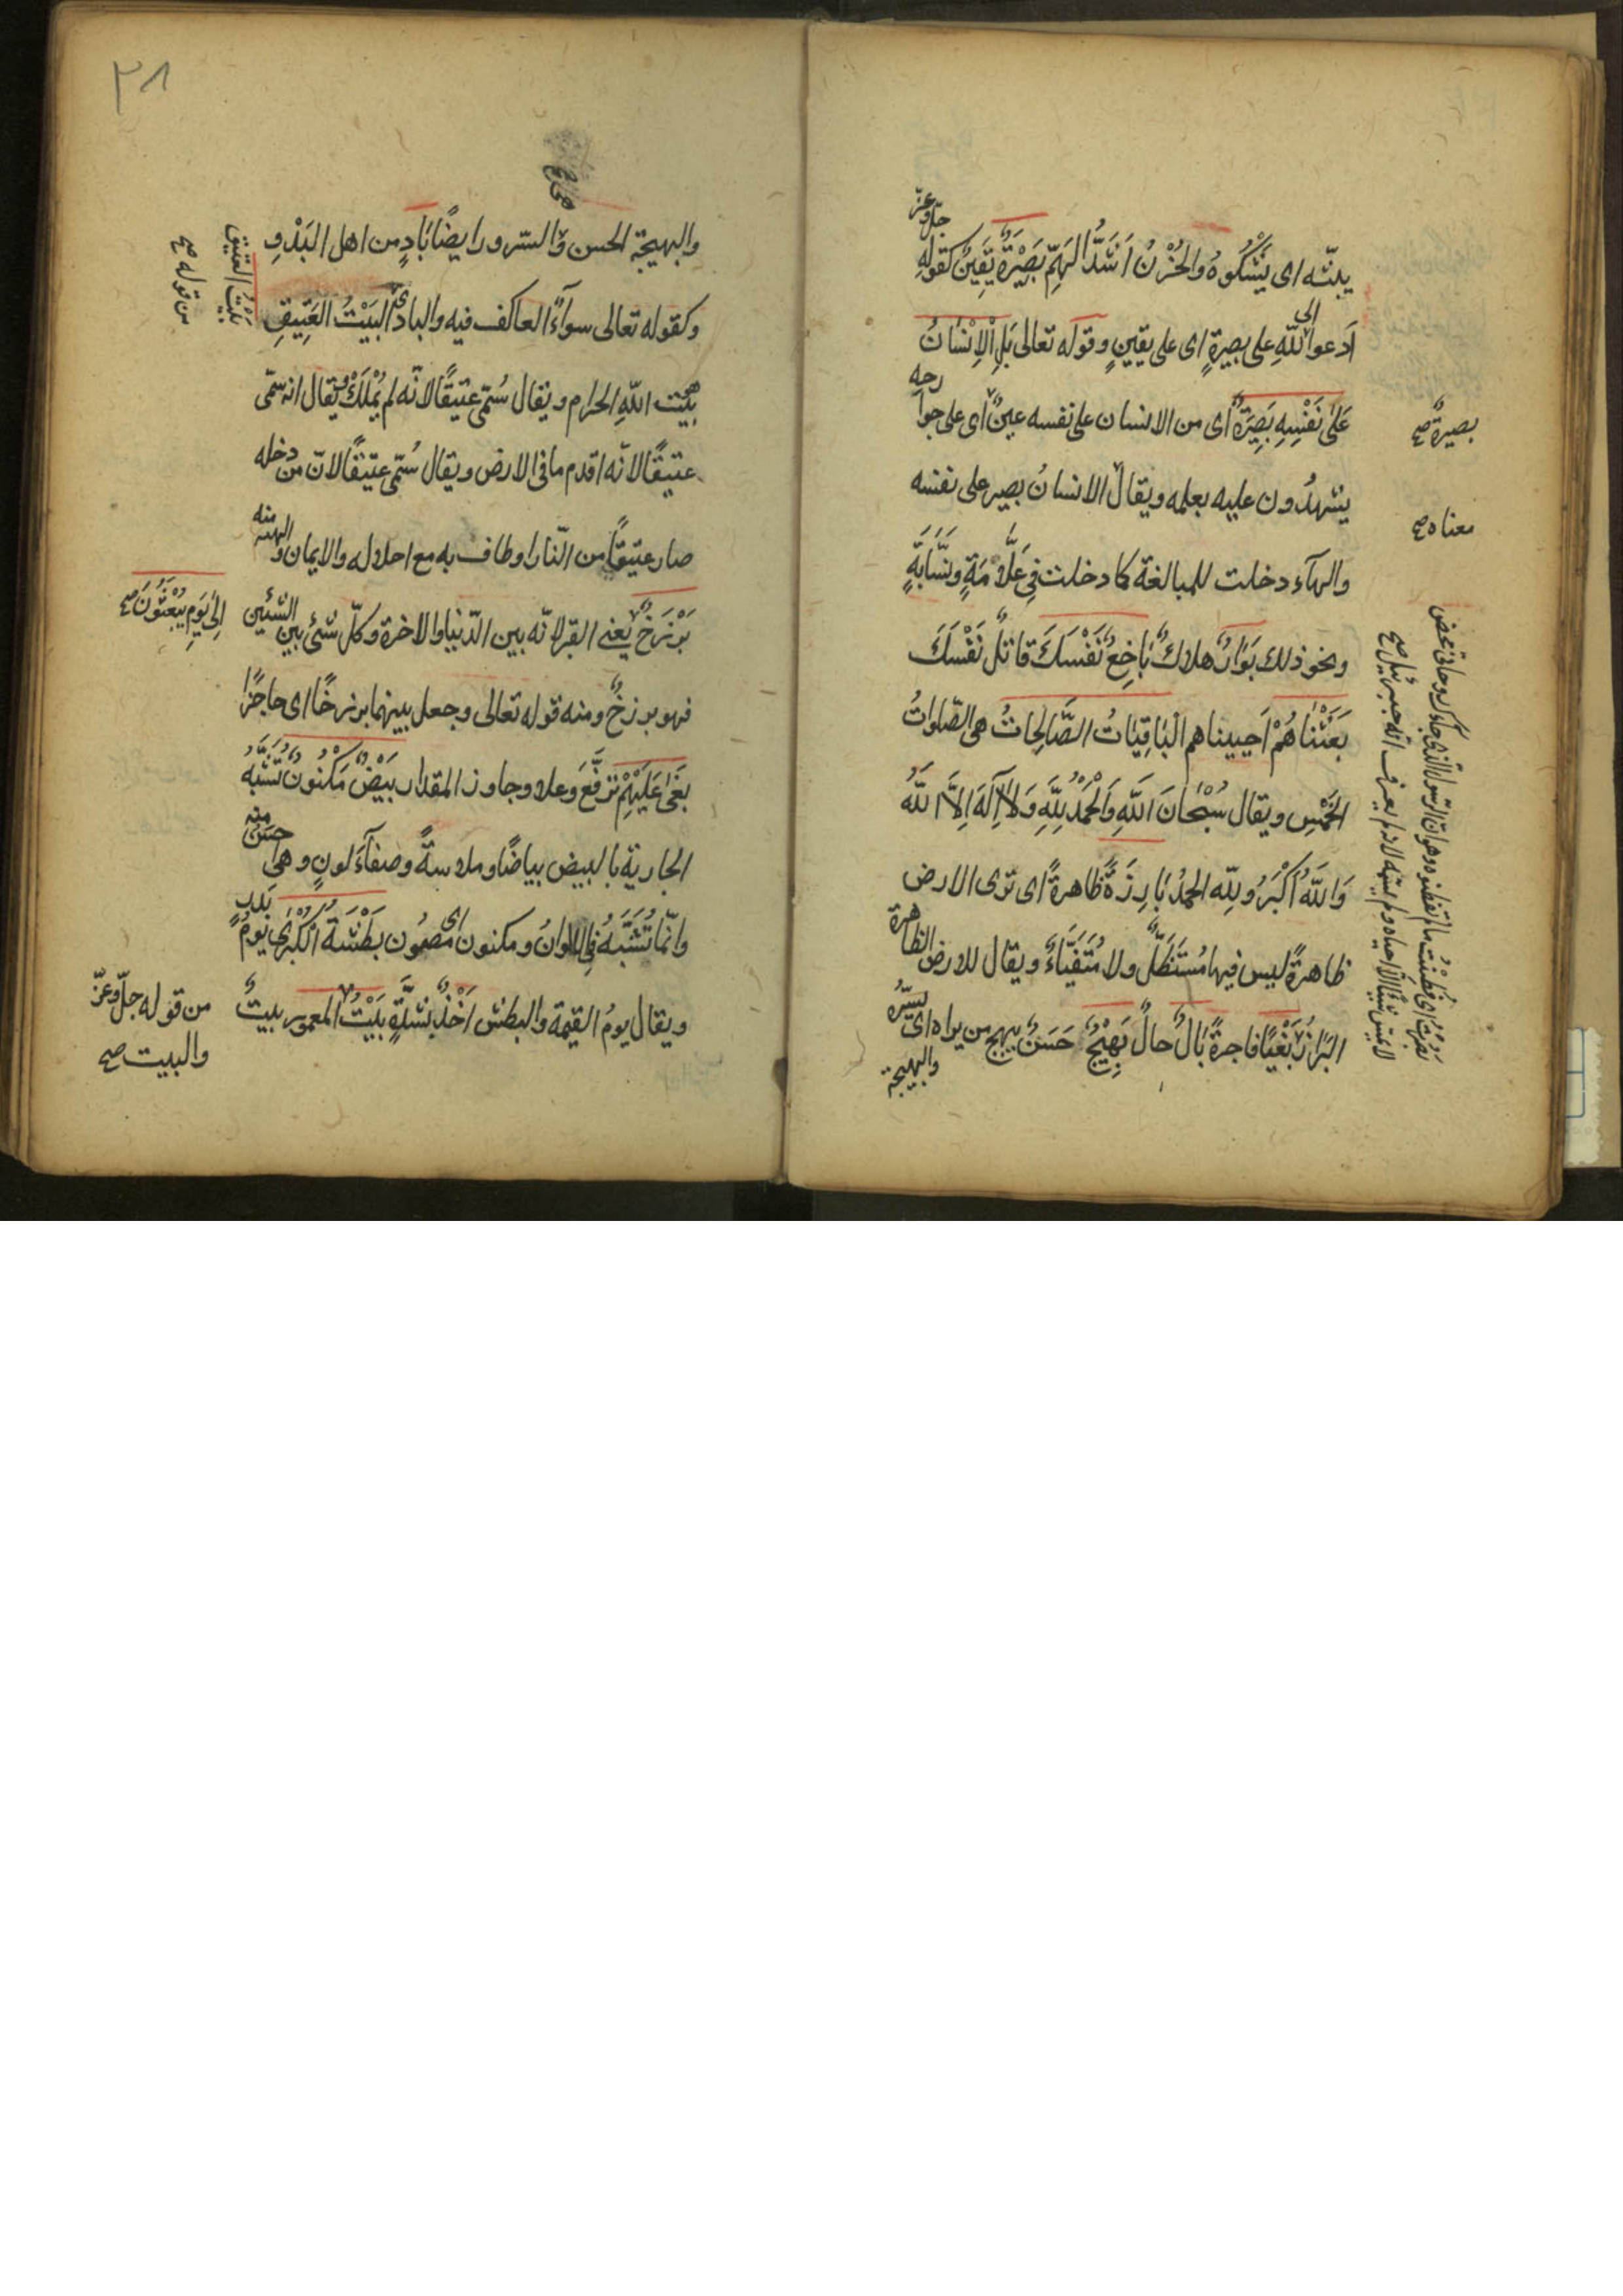 يبثّه اى يَشْكُوهُ والحُزْنُ اَشَدُّ الهَمِّ بَصِيْرَةٌ يَقِينٌ كقولِهِ جلّ وعزّ
اَدعوا الى اللّٰهِ على بصيرةٍ اى على يقينٍ وقوله تعالى بَلِ الْاِنْسَانُ
عَلٰى نَفْسِهِ بَصِيرَةٌ اى من الانسان على نفسه عينٌ اى على جوارحه
يشهدُون عليه بعلمه ويقال الانسانُ بصير على نفسه
والهآء دخلت للمبالغة كما دخلت فى عَلَّامَةٍ ونَسَّابَةٍ
ونحو ذلك بَوَارٌ هلاكٌ بَاخِعٌ نَفْسَكَ قاتلٌ نَفْسَكَ
بَعَثْنَاهُمْ اَحييناهم الْبَاقِيَاتُ الصَّالِحَاتُ هى الصّلواتُ
الخَمْس ويقال سُبْحَانَ اللّٰهِ وَالْحَمْدُ لِلّٰهِ وَلَا اِلٰهَ اِلَّا اللّٰهُ
وَاللّٰهُ اَكْبَرُ ولِلّٰه الحمدُ بَارِزَةً ظاهرةً اى ترى الارض
ظاهرةً ليس فيها مُسْتَظَلٌّ ولا مُتَفَيَّاءٌ ويقال للارض الظاهرة
البَرَازُ بَغْيًا فاجرةً بَالٌ حالٌ بَهِيْجٌ حَسَنٌ يبهج من يراه اى يَسُرُّه
والبهيجة
بصيرةٌ صح
معناه صح
بَصُرْتُ اى فَطِنْتُ ما لم تفطنوه وهو انّ الرسول الذى جاءك روحانى محض
صح
٣١
والبهيجة الحسن والسّرور ايضًا بَادٍ من اهل البَدْوِ
وكقوله تعالى سوآءً العاكف فيه والبادى البَيْتُ العَتِيقِ
هو بَيْت اللّٰهِ الحرام ويقال سُمّى عتيقًا لانّه لم يُمْلَكْ ويقال انه سمّى
عتيقًا لانّه اقدم ما فى الارض ويقال سُمّى عتيقًا لانّ من دخله
صار عتيقًا من النّار او طاف به مع احلاله والايمان
بَرْزَخٌ يعنى القبر لانّه بين الدّنيا والاخرة وكلّ شئ بين الشئين
فهو برزخٌ ومنه قوله تعالى وجعل بينهما برزخًا اى حاجزًا
بَغٰى عَلَيْهِمْ تَرَفَّعَ وَعلا وجاوز المقدار بَيْضٌ مَكْنُونٌ تُشَبَّهُ
الجارية بالبيض بياضًا وملاسةً وصفآءَ لونٍ وهى حسن منه
وانّما تُشَبَّهُ فى الالوانُ ومكنون اى مصُون بَطْشَةُ الْكُبْرٰى يومُ بَدر
ويقال يومُ القيمة والبطش اَخْذٌ بشدَّةٍ بَيْتُ المعمور بيتٌ
بَيْتُ العَتيق
من قوله صح
اِلٰى يَوْمِ يُبْعَثُونَ صح
من قوله جلّ وعزّ
والبيت صح